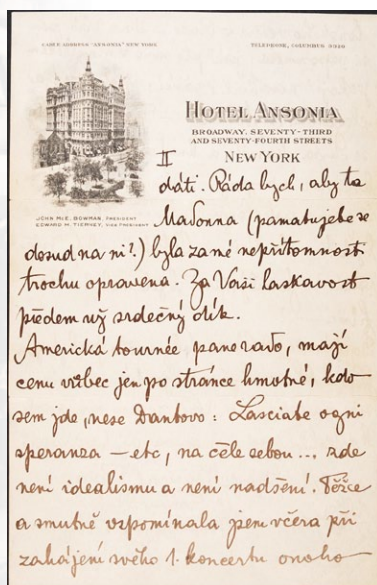 CABLE ADDRESS "ANSONIA" NEW YORK
TELEPHONE, COLUMBUS 3320
HOTEL ANSONIA
BROADWAY, SEVENTY-THIRD
AND SEVENTY-FOURTH STREETS
NEW YORK
JOHN McE. BOWMAN, PRESIDENT
EDWARD M. TIERNEY, VICE PRESIDENT
II
dáti. Ráda bych, aby ta
Madonna (pamatujete se
dosud na ni?) byla za mé nepřítomnosti
trochu opravena. Za Vaši laskavost
předem už srdečný dík.
Americká tournée pane rado, mají
cenu vůbec jen po stránce hmotné, kdo
sem jde, nese Dantovo: Lasciate ogni
speranza — etc, na čele sebou ... zde
není idealismu a není nadšení. Těžce
a smutně vzpomínala jsem včera při
zahájení svého 1. koncertu onoho